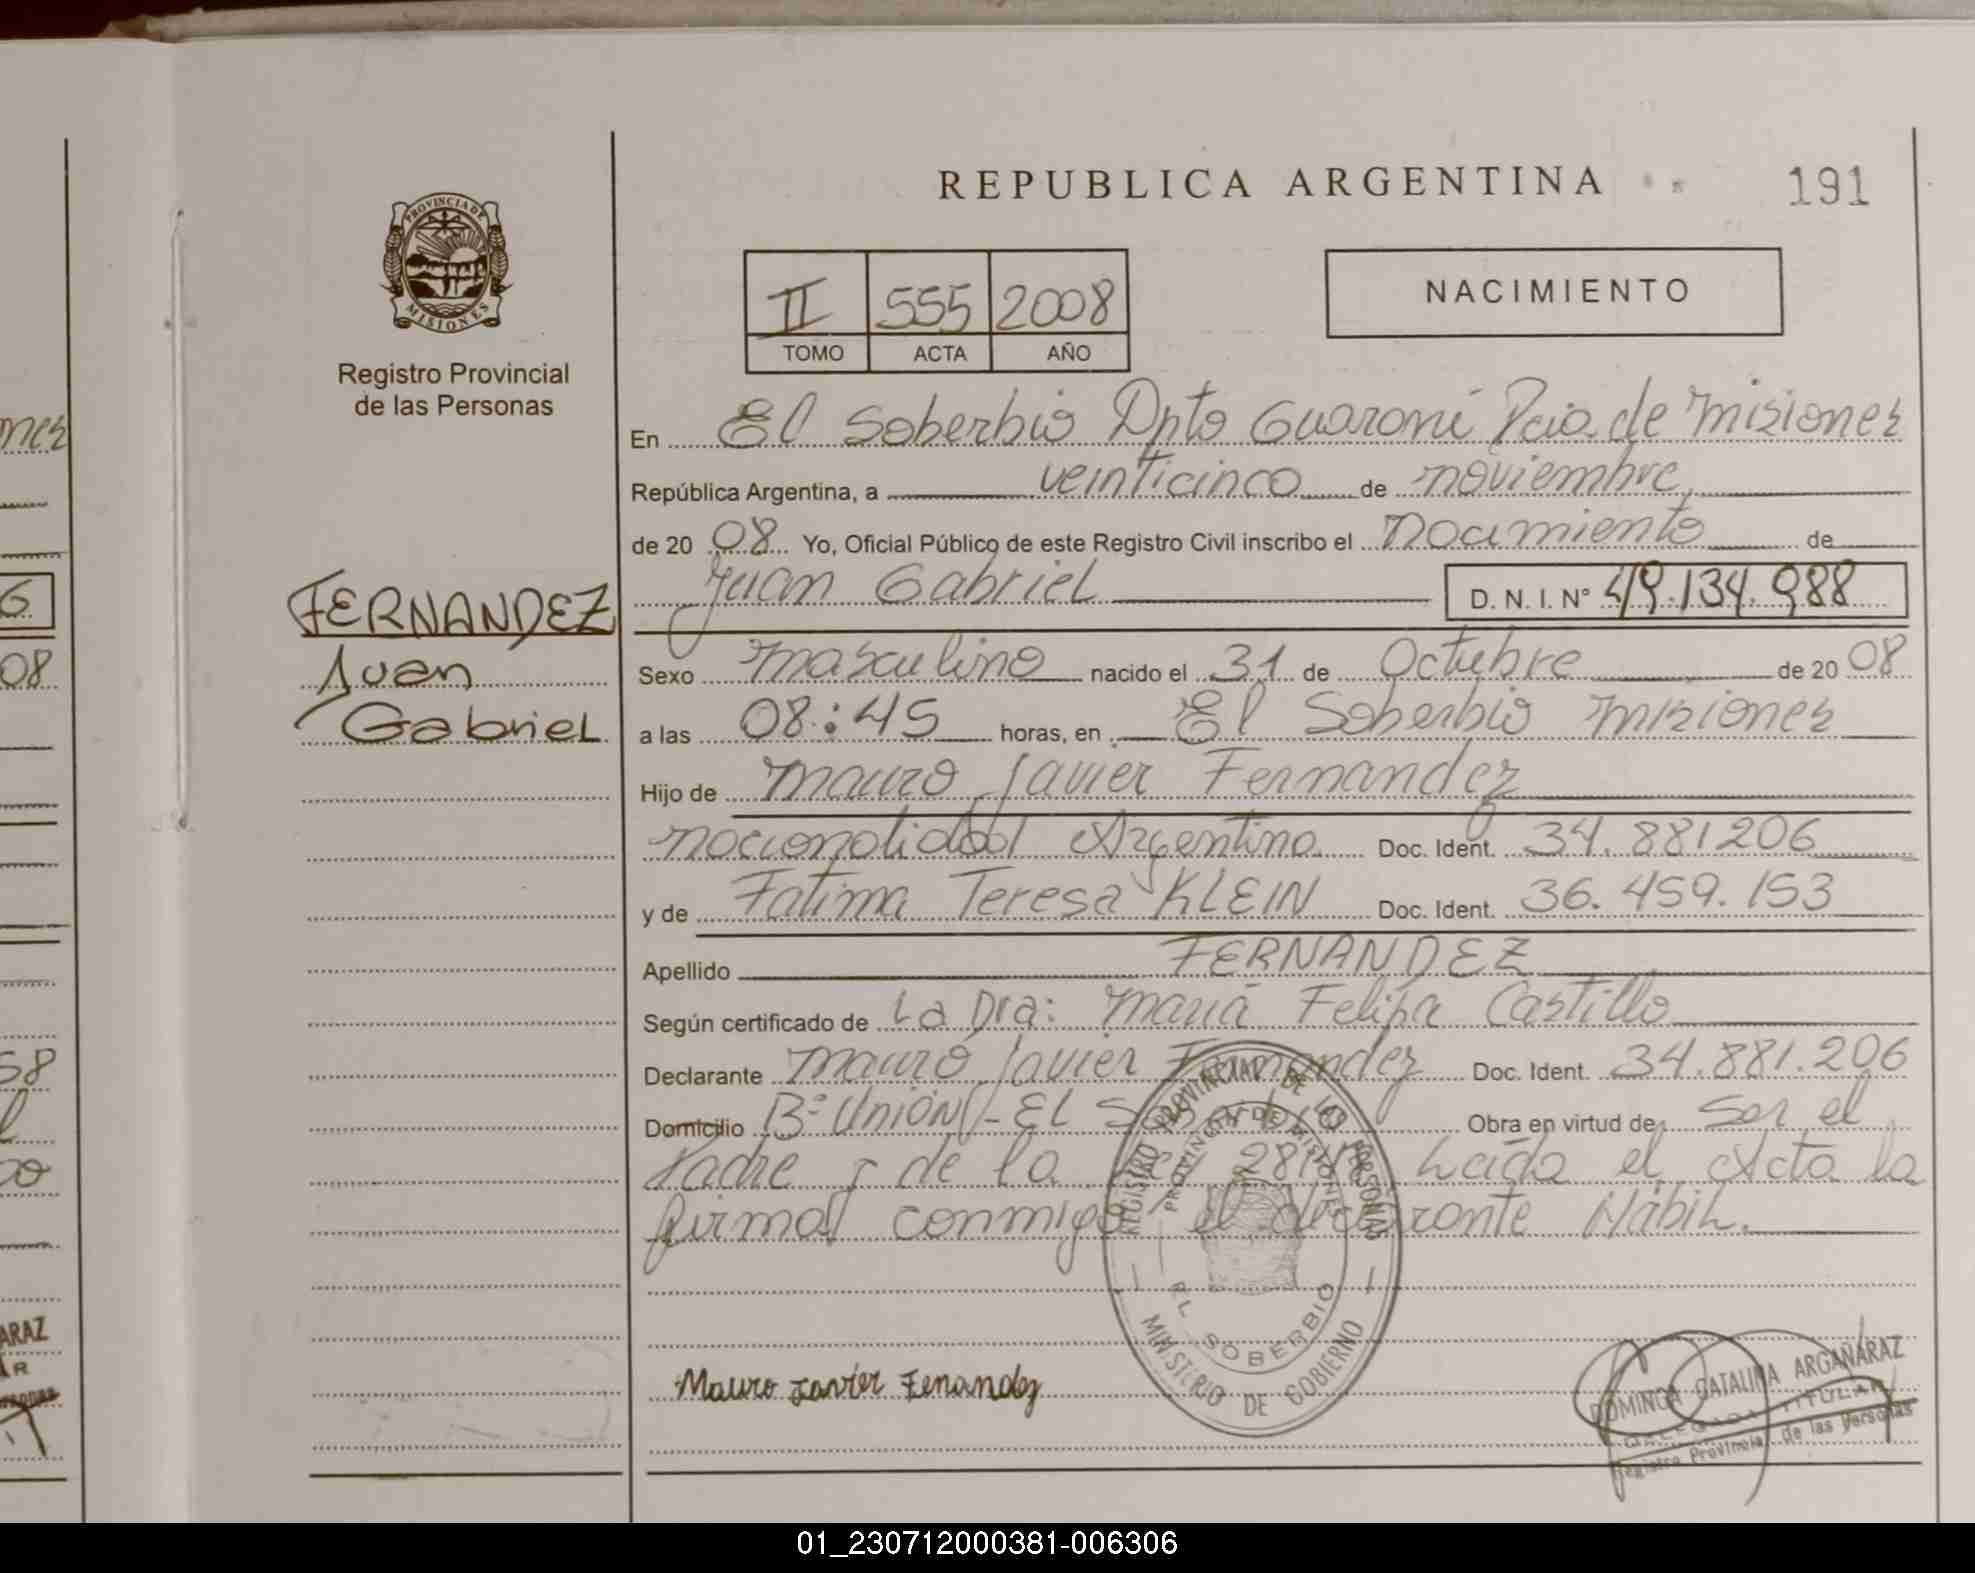 REPUBLICA ARGENTINA
191
PROVINCIA DE MISIONES
Registro Provincial
de las Personas
II 555 2008
TOMO ACTA AÑO
NACIMIENTO
En El Soberbio Dpto Guaraní Pcia de Misiones
República Argentina, a veinticinco de noviembre
de 20 08 Yo, Oficial Público de este Registro Civil inscribo el Nacimiento de
Juan Gabriel D. N. I. Nº 49.134.988
FERNANDEZ
Juan
Gabriel
Sexo masculino nacido el 31 de Octubre de 20 08
a las 08:45 horas, en El Soberbio Misiones
Hijo de Mauro Javier Fernandez
nacionalidad Argentina Doc. Ident. 34.881206
y de Fatima Teresa KLEIN Doc. Ident. 36.459.153
Apellido FERNANDEZ
Según certificado de La Dra: María Felipa Castillo
Declarante Mauro Javier Fernandez Doc. Ident. 34.881.206
Domicilio Bº Unión - El Soberbio Obra en virtud de Ser el
Padre y de la Leída el Acta la
firma conmigo el declarante Hábil.
REGISTRO PROVINCIAL DE LAS PERSONAS
PROVINCIA DE MISIONES
EL SOBERBIO
MINISTERIO DE GOBIERNO
Mauro Javier Fenandez
DOMINGA CATALINA ARGAÑARAZ
DELEGADA TITULAR
Registro Provincial de las Personas
01_230712000381-006306